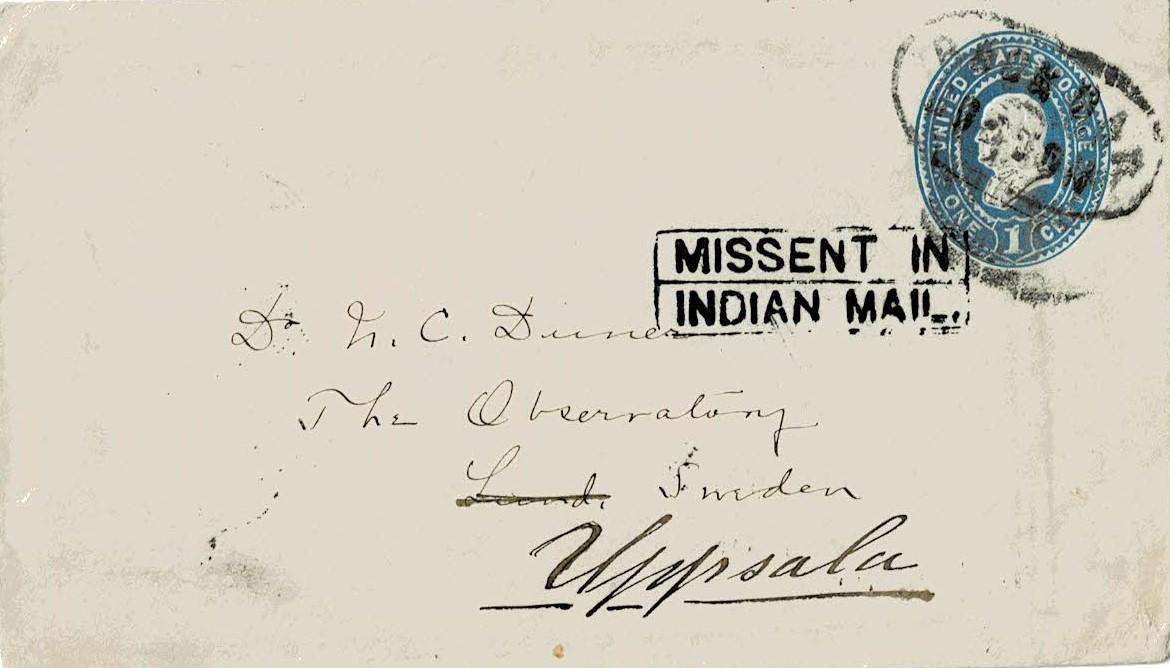 UNITED STATES POSTAGE
ONE 1 CENT
MISSENT IN
INDIAN MAIL
Dr. N. C. Duner
The Observatory
Lund, Sweden
Uppsala